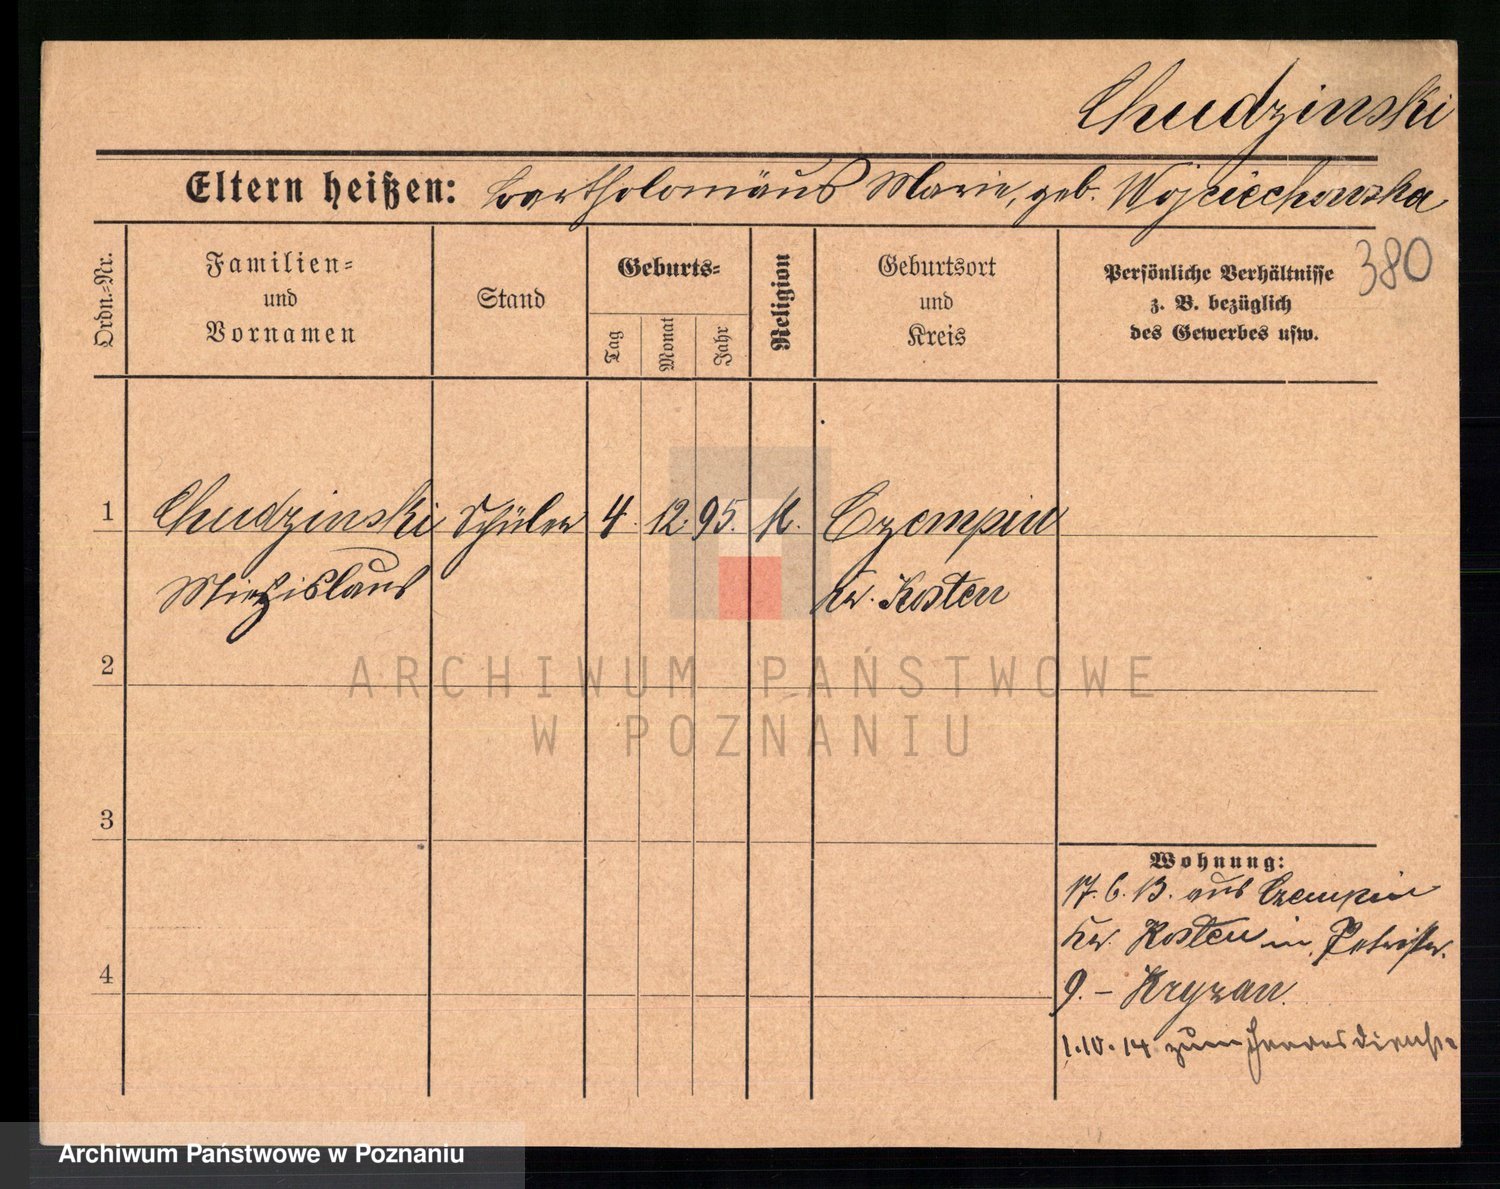 Chudzinski
Eltern heißen: Bartholomäus Marie, geb. Wojciechowska
380
Ordn.=Nr.
Familien=
und
Vornamen
Stand
Geburts=
Tag
Monat
Jahr
Religion
Geburtsort
und
Kreis
Persönliche Verhältnisse
z. B. bezüglich
des Gewerbes usw.
1 Chudzinski Schüler 4. 12. 95. K. Czempin
Miezislaus Kr. Kosten
2
ARCHIWUM PAŃSTWOWE
W POZNANIU
3
Wohnung:
17. 6. 13. aus Czempin
Kr. Kosten in, Petristr.
4
9. – Kryzan.
1. 10. 14 zum Heeresdienste
Archiwum Państwowe w Poznaniu